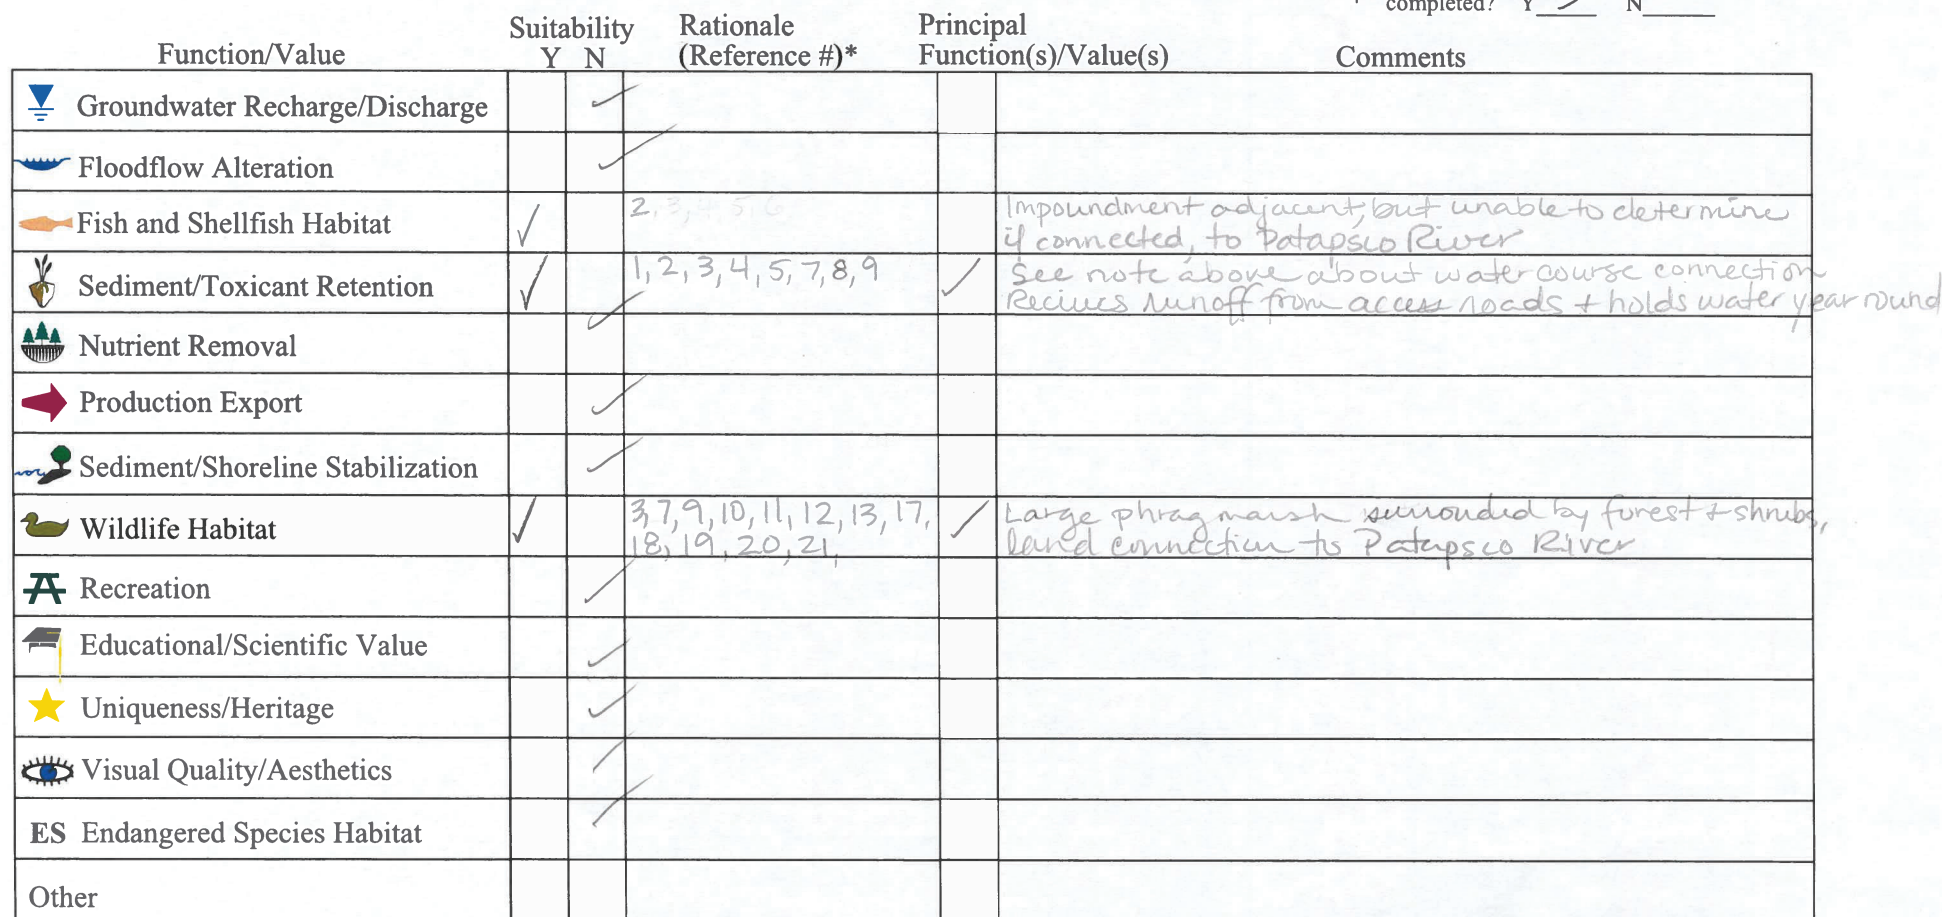 completed? Y ✓ N
Suitability Rationale Principal
Function/Value Y N (Reference #)* Function(s)/Value(s) Comments
Groundwater Recharge/Discharge ✓
Floodflow Alteration ✓
Fish and Shellfish Habitat ✓ 2, 3, 4, 5, 6 Impoundment adjacent, but unable to determine
if connected, to Patapsco River
Sediment/Toxicant Retention ✓ 1, 2, 3, 4, 5, 7, 8, 9 ✓ See note above about watercourse connection
Recives runoff from access roads + holds water year round
Nutrient Removal ✓
Production Export ✓
Sediment/Shoreline Stabilization ✓
Wildlife Habitat ✓ 3, 7, 9, 10, 11, 12, 13, 17, ✓ Large phrag marsh surrounded by forest + shrubs,
18, 19, 20, 21, land connection to Patapsco River
Recreation ✓
Educational/Scientific Value ✓
Uniqueness/Heritage ✓
Visual Quality/Aesthetics ✓
ES Endangered Species Habitat ✓
Other